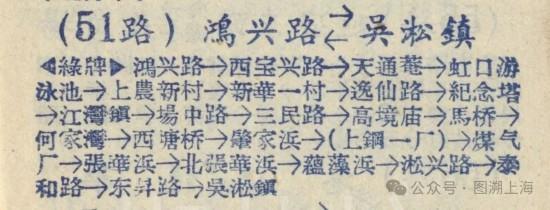 (51路) 鴻兴路⇄吳淞鎮
◁綠牌▷鴻兴路→西宝兴路→天通菴→虹口游
泳池→上農新村→新華一村→逸仙路→紀念塔
→江灣鎮→場中路→三民路→高境庙→馬桥→
何家灣→西塘桥→肇家浜→(上鋼一厂)→煤气
厂→張華浜→北張華浜→蕴藻浜→淞兴路→泰
和路→东昇路→吳淞鎮
公众号·图溯上海